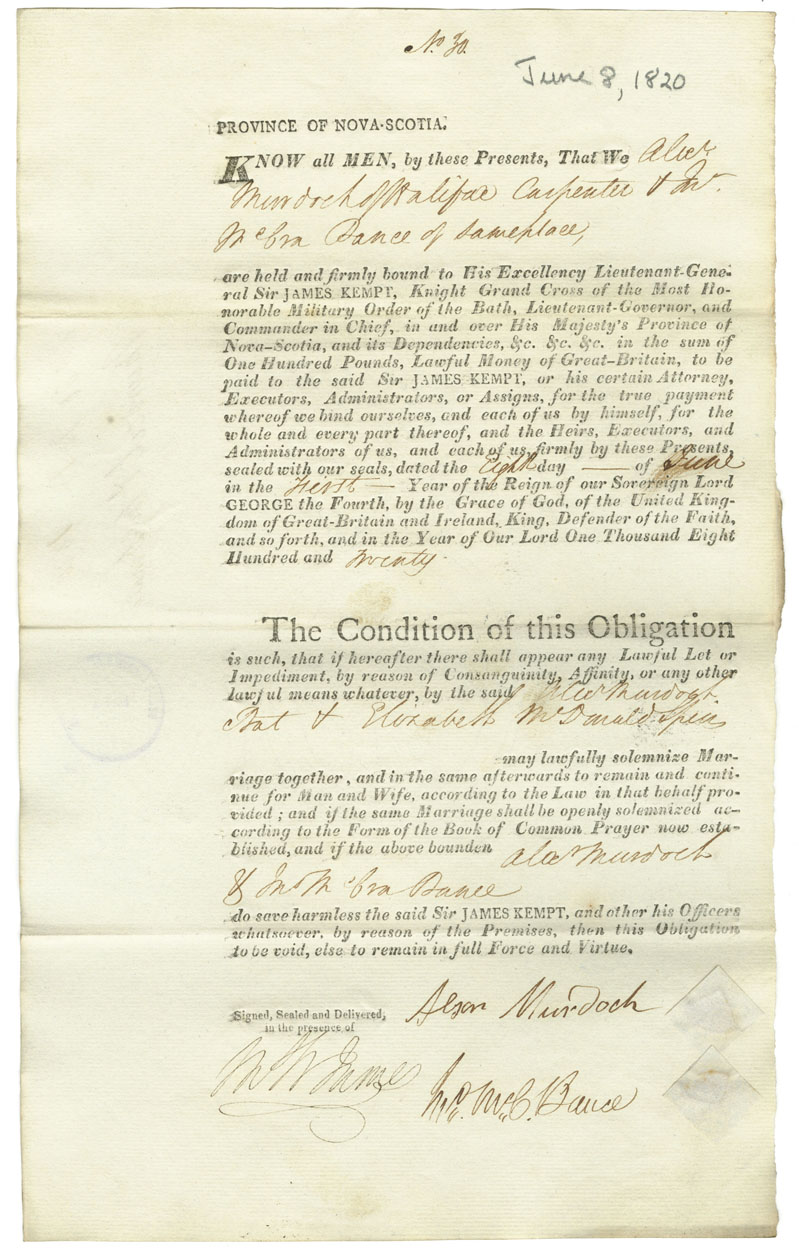 No. 30.
June 8, 1820
PROVINCE OF NOVA-SCOTIA.
KNOW all MEN, by these Presents, That We Alexr
Murdoch of Halifax Carpenter & Jno.
McCra Bance of Same place,
are held and firmly bound to His Excellency Lieutenant-Gene-
ral Sir JAMES KEMPT, Knight Grand Cross of the Most Ho-
norable Military Order of the Bath, Lieutenant-Governor, and
Commander in Chief, in and over His Majesty's Province of
Nova-Scotia, and its Dependencies, &c. &c. &c. in the sum of
One Hundred Pounds, Lawful Money of Great-Britain, to be
paid to the said Sir JAMES KEMPT, or his certain Attorney,
Executors, Administrators, or Assigns, for the true payment
whereof we bind ourselves, and each of us by himself, for the
whole and every part thereof, and the Heirs, Executors, and
Administrators of us, and each of us, firmly by these Presents,
sealed with our seals, dated the Eight day — of June
in the First — Year of the Reign of our Sovereign Lord
GEORGE the Fourth, by the Grace of God, of the United King-
dom of Great-Britain and Ireland, King, Defender of the Faith,
and so forth, and in the Year of Our Lord One Thousand Eight
Hundred and Twenty.
The Condition of this Obligation
is such, that if hereafter there shall appear any Lawful Let or
Impediment, by reason of Consanguinity, Affinity, or any other
lawful means whatever, by the said Alexr Murdoch
Bat & Elizabeth McDonald Spin
may lawfully solemnize Mar-
riage together, and in the same afterwards to remain and conti-
nue for Man and Wife, according to the Law in that behalf pro-
vided; and if the same Marriage shall be openly solemnized ac-
cording to the Form of the Book of Common Prayer now esta-
blished, and if the above bounden Alexr Murdoch
& Jno McCra Bance
do save harmless the said Sir JAMES KEMPT, and other his Officers
whatsoever, by reason of the Premises, then this Obligation
to be void, else to remain in full Force and Virtue.
Signed, Sealed and Delivered,
in the presence of
Alexr Murdoch
Jno. McC. Bance